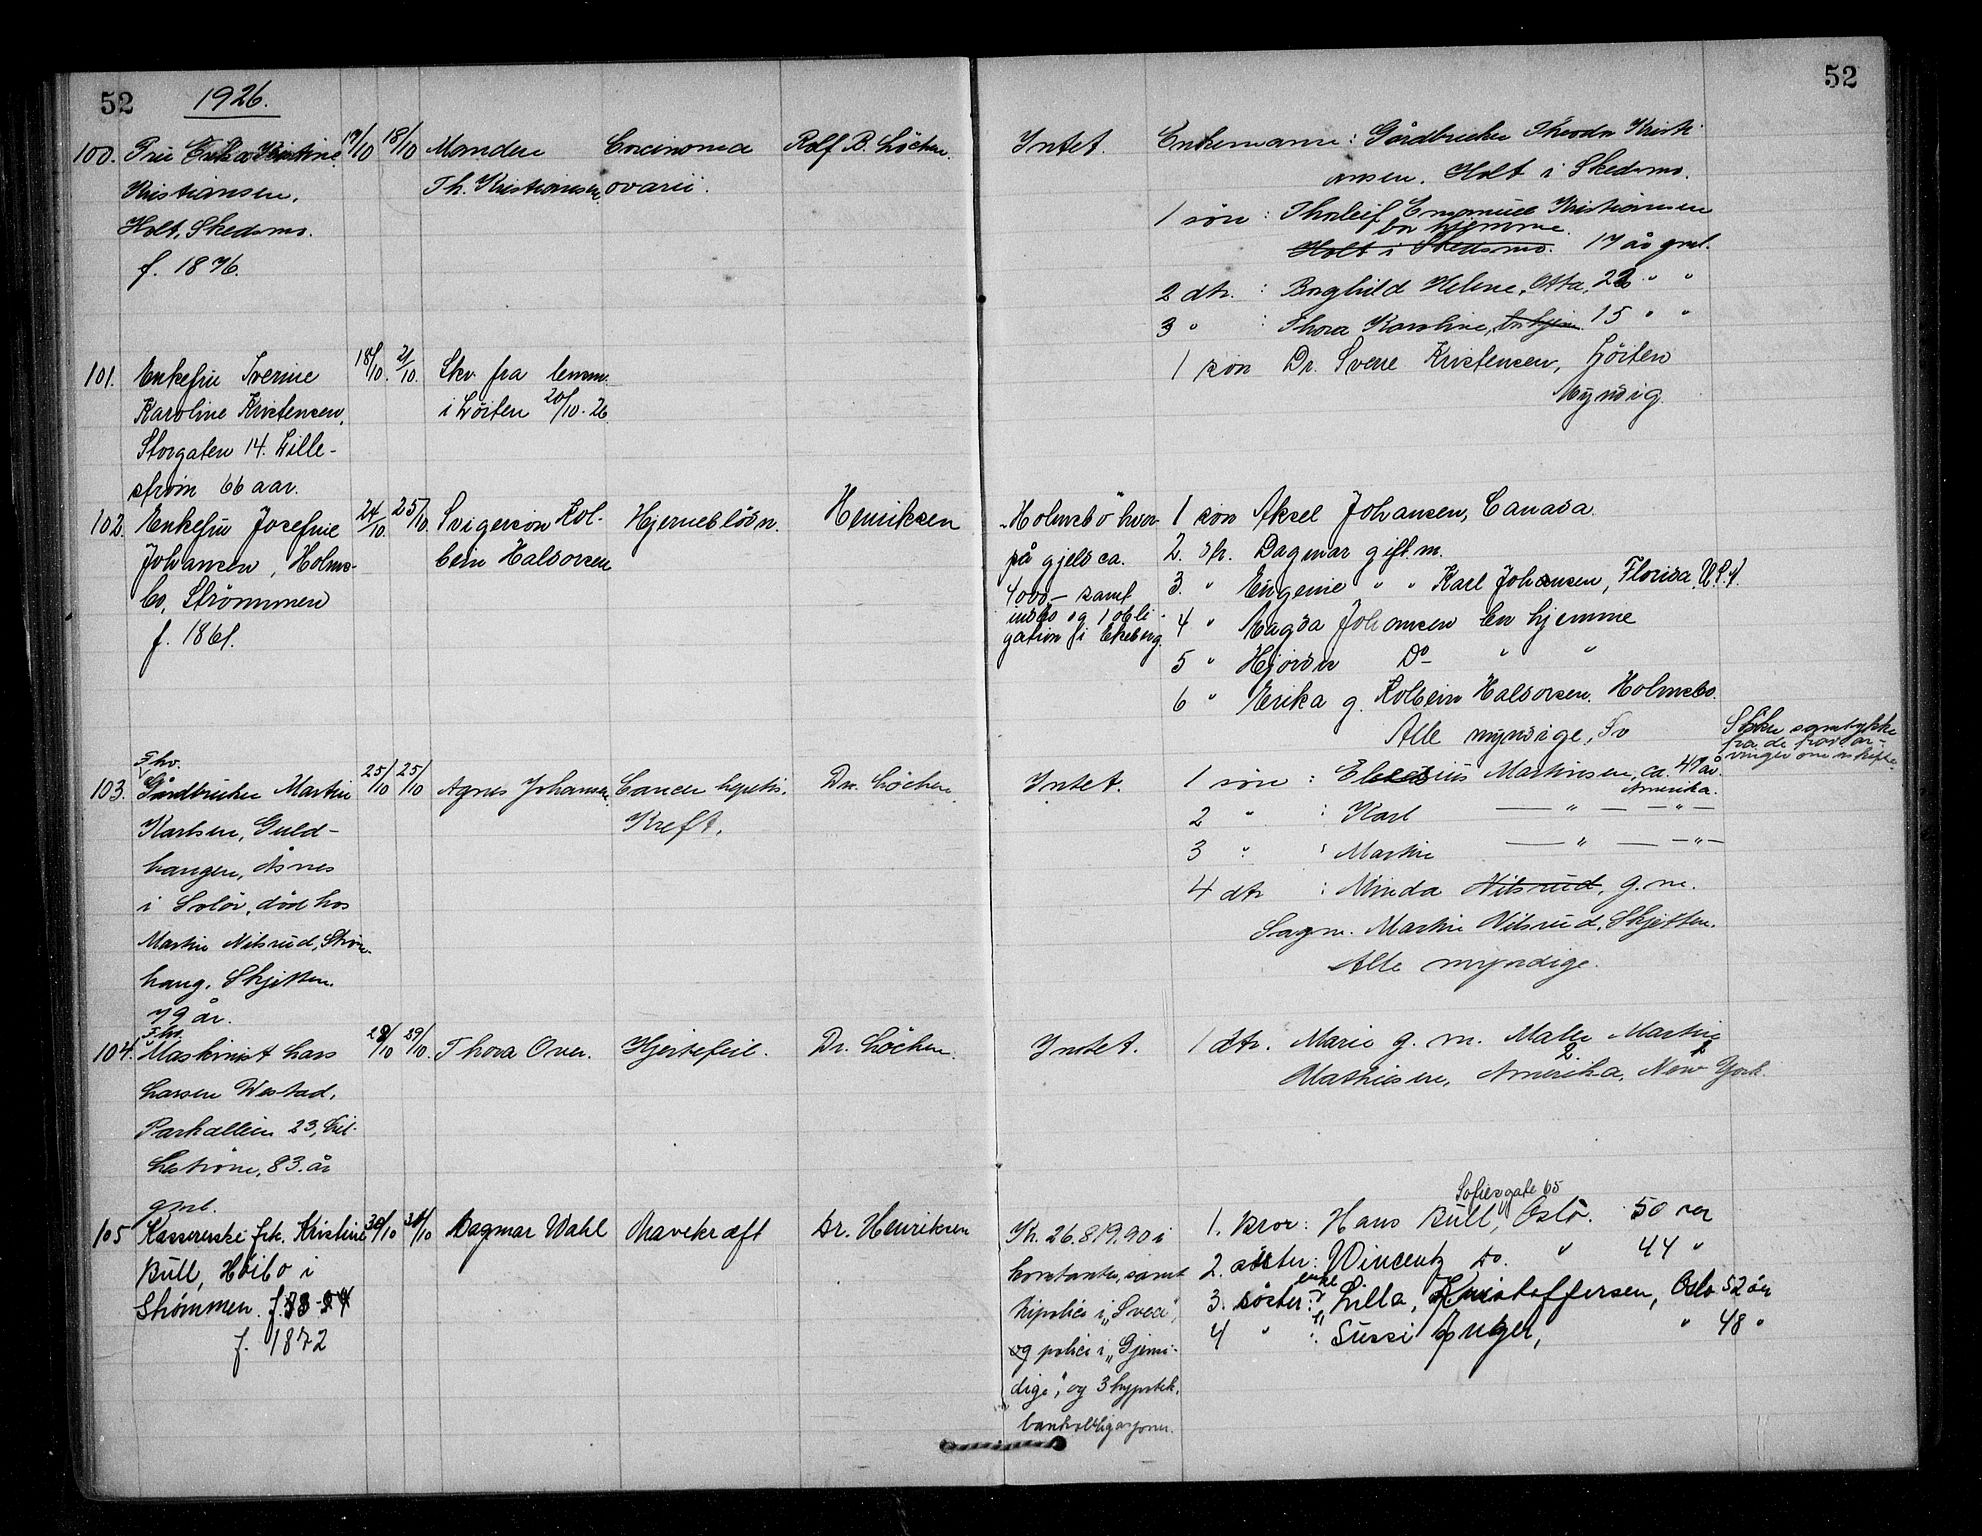 52
1926.
52
100. Fru Kristine
Kristiansen,
Holt, Skedsmo.
f. 1876.
17/10 18/10
Manden
Th. Kristiansen
Carcinoma
ovarii.
Rolf B. Løchen.
Intet.
Enkemann: Gårdbruker Theodor Kristi-
ansen. Holt i Skedsmo.
1 søn : Thorleif Emanuel Kristiansen
bor hjemme.
Holt i Skedsmo. 17 år gml.
2 dtr. : Borghild Helene, Otta, " "
3 " : Thora Karoline, 15 " "
101. Enkefru Iverine
Karoline Kristensen,
Storgaten 14. Lille-
strøm 66 aar.
18/10. 21/10.
Skv. fra lensm.
i Løiten 20/10.26
1 søn Dr. Svene Kristensen, Løiten
Myndig
102. Enkefru Josefine
Johansen, Holms-
bo, Strømmen
f. 1861.
24/10. 25/10.
Svigersøn Kol-
bein Halvorsen
Hjerneblødn.
Henriksen
"Holmsbo" hvor-
på gjeld ca.
4000- samt
indbo og 1 obli-
gation i Ekeberg.
1 søn Aksel Johansen, Canada.
2. dtr. Dagmar gift m.
3. " Eugenie " " Karl Johansen, Florida, U.S.A.
4 " Magda Johansen bor hjemme
5 " Hjørdis Do " "
6 " Erika g. Kolbein Halvorsen. Holmsbo.
Alle myndige,
103. Fhv.
Gårdbruker Martin
Karlsen, Guld-
haugen, Åsnes
i Solør, død hos
Martin Nilsrud, Strøm-
haug. Skjetten.
79 år.
25/10 25/10
Agnes Johansen
Cancer hepatis.
Kreft.
Dr. Løchen.
Intet.
1 søn : Martinsen, ca. 49 år.
Amerika.
2 " : Karl — " — — " —
3 " : Martin — " — — " —
4 dtr : Minda Nilsrud, g. m.
Sagm. Martin Nilsrud, Skjetten.
Alle myndige.
samtykke
fra de
104. Fhv.
Maskinist Lars
Larsen Westad,
Parkalleen 23, Lil-
lestrøm, 83. år
gml.
28/10 29/10.
Thora Over.
Hjertefeil.
Dr. Løchen.
Intet.
1 dtr. Marie g. m. Maler Martin
Mathiesen, Amerika, New York.
105 Kassererske frk. Kristine
Bull, Høibo i
Strømmen.
f. 1872
30/10 30/10
Dagmar Wahl
Mavekræft
Dr. Henriksen
Kr. 26.819.90 i
kontanter, samt
livpolice i "Svea",
og police i "Gjensi-
dige", og 3 hypotek-
bankobligasjoner.
Sofiesgate 65
1. Bror: Hans Bull, Oslo. 50 aar
2. Wincentz Do. " 44 "
enke
3. søster: Lilla, Kristoffersen, Oslo 52 år
4 " : Sussi Anker, " 48 "